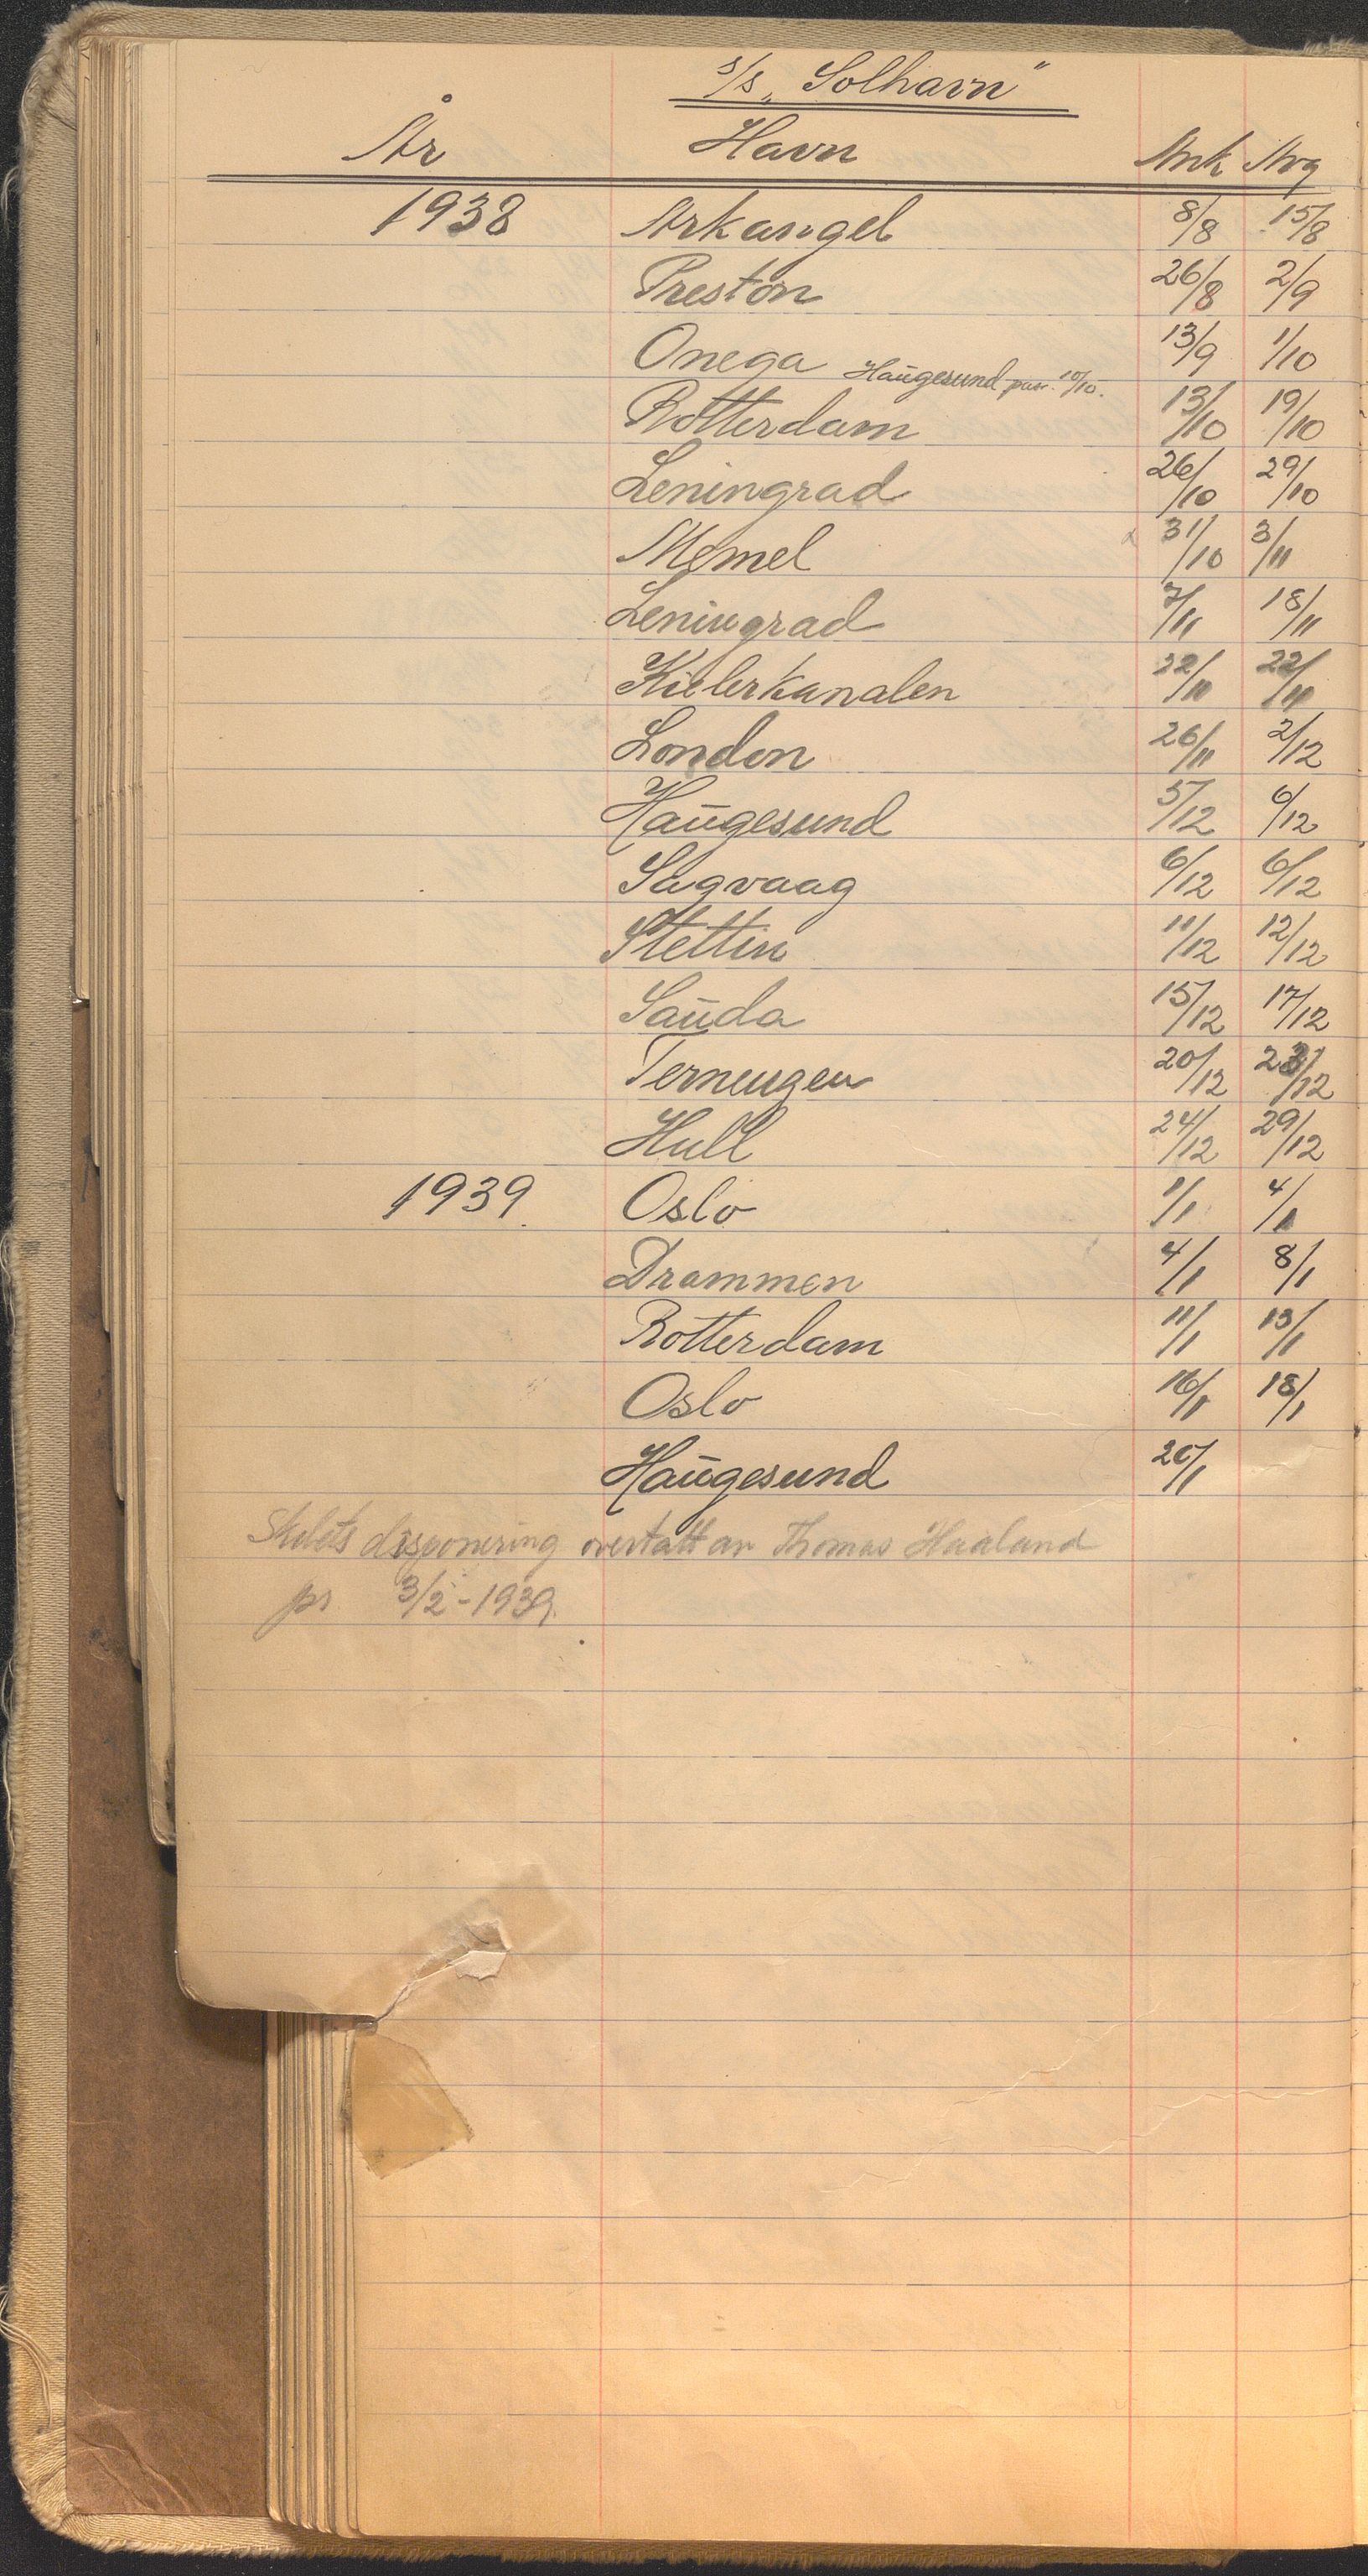 s/s „Solhavn"
År Havn Ank Avg
1938 Arkangel 8/8 15/8
Preston 26/8 2/9
Onega 13/9 1/10
Haugesund pass. 10/10.
Rotterdam 13/10 19/10
Leningrad 26/10 29/10
Memel 31/10 3/11
Leningrad 7/11 18/11
Kielerkanalen 22/11 22/11
London 26/11 2/12
Haugesund 5/12 6/12
Sagvaag 6/12 6/12
Stettin 11/12 12/12
Sauda 15/12 17/12
Terneuzen 20/12 23/12
Hull 24/12 29/12
1939. Oslo 1/1 4/1
Drammen 4/1 8/1
Rotterdam 11/1 13/1
Oslo 16/1 18/1
Haugesund 20/1
Skibets disponering overtatt av Thomas Haaland
pr 3/2 - 1939.